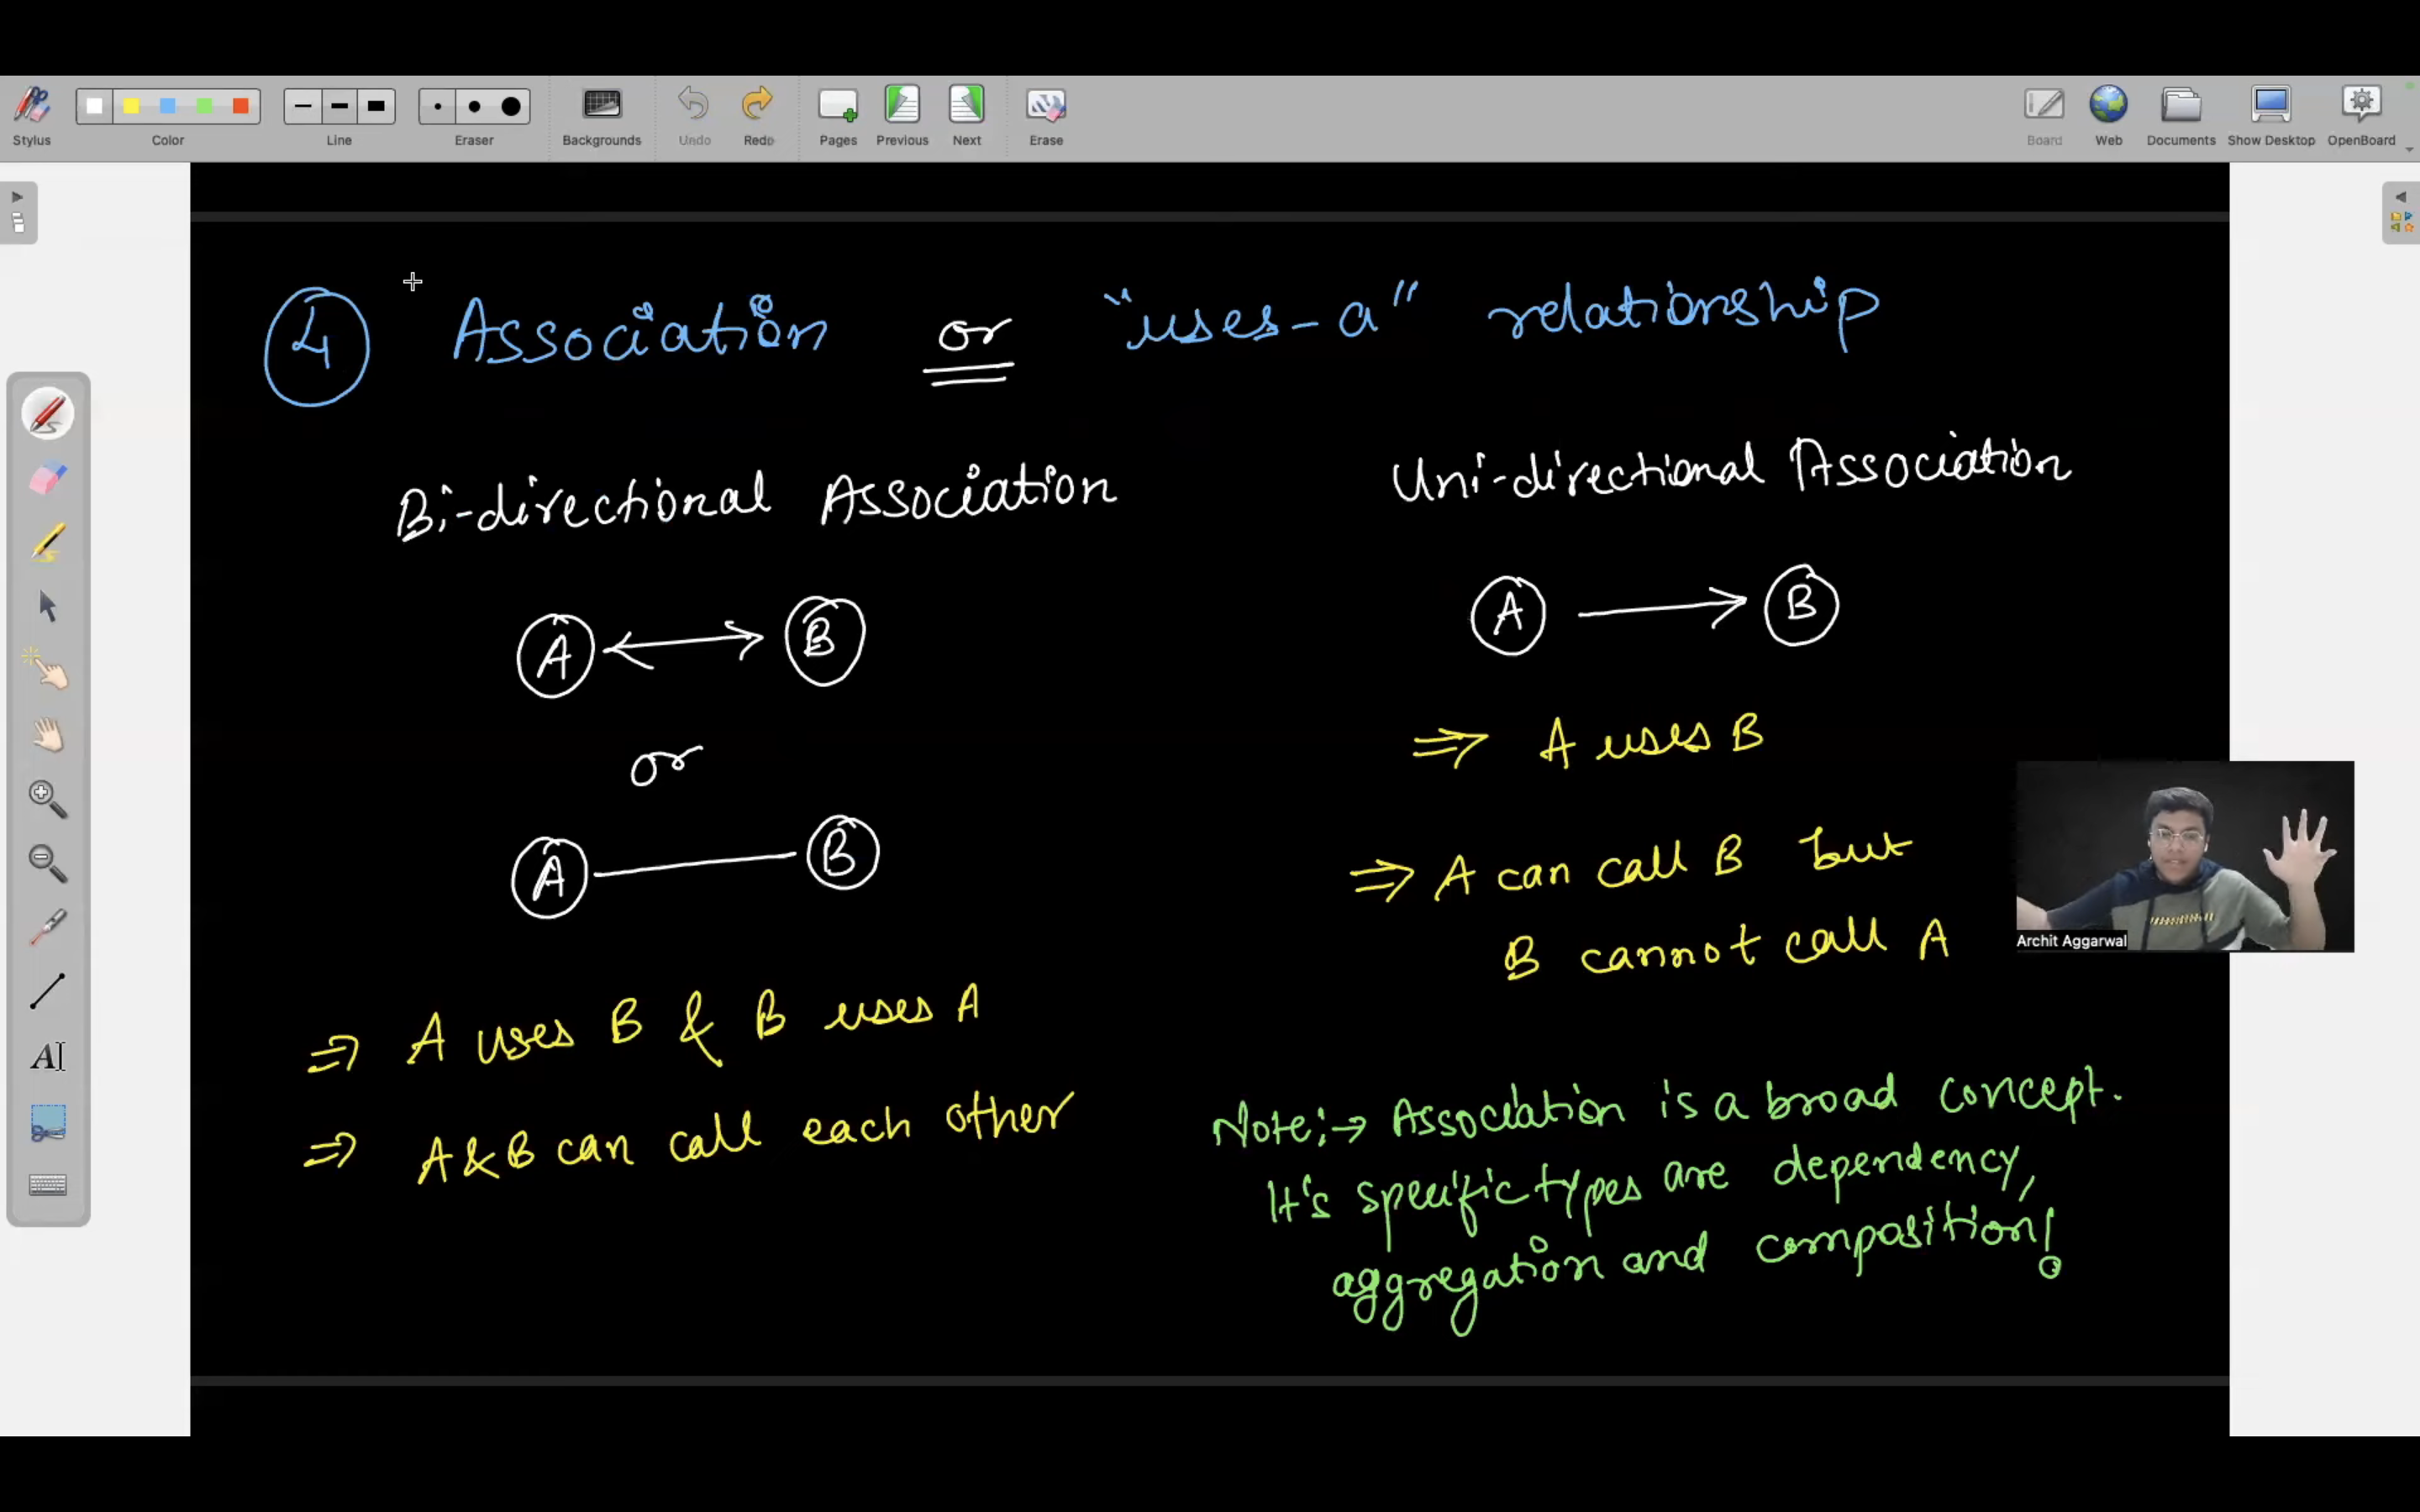 Stylus
Color
Line
Eraser
Backgrounds
Undo
Redo
Pages
Previous
Next
Erase
Board
Web
Documents
Show Desktop
OpenBoard
4 Association or "uses-a" relationship
Bi-directional Association
A B
or
A B
⇒ A uses B & B uses A
⇒ A & B can call each other
Uni-directional Association
A B
⇒ A uses B
⇒ A can call B but
B cannot call A
Note:→ Association is a broad concept.
It's specific types are dependency,
aggregation and composition!
Archit Aggarwal
AI